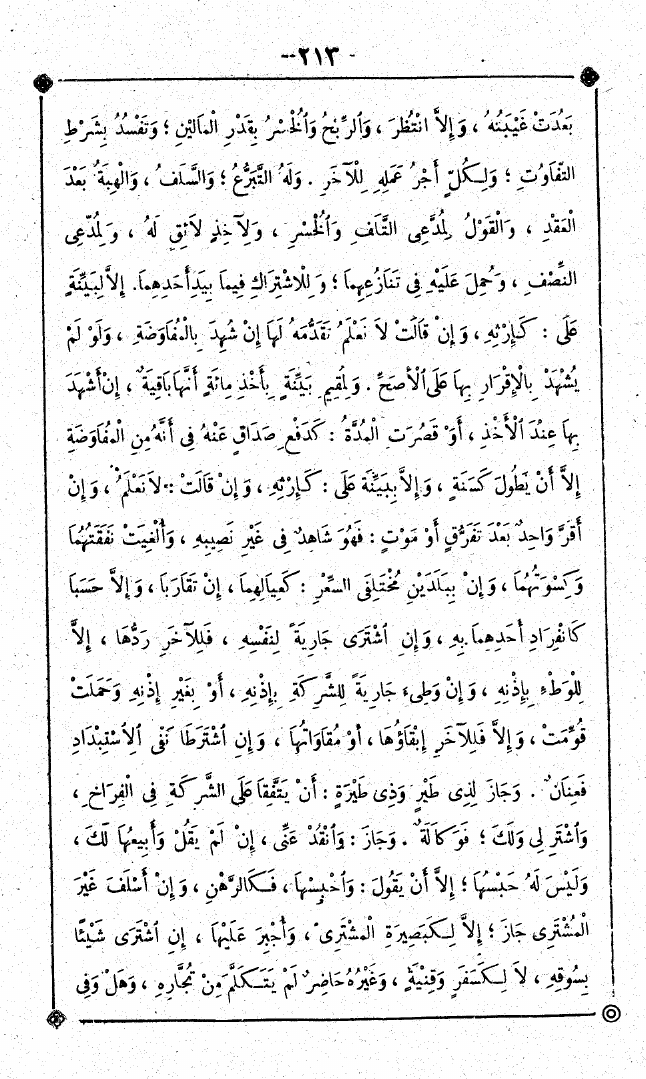 - ٢١٣ --
بَعُدَتْ غَيْبَتُهُ ، وَإِلاَّ انْتُظِرَ ، وَٱلرِّبْحُ وَٱلْخُسْرُ بِقَدْرِ الْمَالَيْنِ ؛ وَتَفْسُدُ بِشَرْطِ
التَّفَاوُتِ ؛ وَلِكُلٍّ أَجْرُ عَمَلِهِ لِلْآخَرِ . وَلَهُ التَّبَرُّعُ ؛ وَالسَّلَفُ ، وَالْهِبَةُ بَعْدَ
الْعَقْدِ ، وَالْقَوْلُ لِمُدَّعِى التَّلَفِ وَٱلْخُسْرِ ، وَلِآخِذٍ لاَئِقٍ لَهُ ، وَلِمُدَّعِى
النِّصْفِ ، وَحُمِلَ عَلَيْهِ فِى تَنَازُعِهِمَا ؛ وَلِلْاشْتِرَاكِ فِيمَا بِيَدِ أَحَدِهِمَا. إِلاَّ لِبَيِّنَةٍ
عَلَى : كَإِرْثِهِ ، وَإِنْ قَالَتْ لاَ نَعْلَمُ تَقَدُّمَهُ لَهَا إِنْ شُهِدَ بِالْمُفَاوَضَةِ ، وَلَوْ لَمْ
يُشْهَدْ بِالْإِقْرَارِ بِهَا عَلَى ٱلْأَصَحِّ . وَلِمُقِيمِ بَيِّنَةٍ بِأَخْذِ مِائَةٍ أَنَّهَا بَاقِيَةٌ ، إِنْ أَشْهَدَ
بِهَا عِنْدَ ٱلْأَخْذِ ، أَوْ قَصُرَتِ الْمُدَّةُ : كَدَفْعِ صَدَاقٍ عَنْهُ فِى أَنَّهُ مِنَ الْمُفَاوَضَةِ
إِلاَّ أَنْ يَطُولَ كَسَنَةٍ ، وَإِلاَّ بِبَيِّنَةٍ عَلَى : كَإِرْثِهِ ، وَإِنْ قَالَتْ : لاَ نَعْلَمُ ، وَإِنْ
أَقَرَّ وَاحِدٌ بَعْدَ تَفَرُّقٍ أَوْ مَوْتٍ : فَهُوَ شَاهِدٌ فِى غَيْرِ نَصِيبِهِ ، وَأُلْغِيَتْ نَفَقَتُهُمَا
وَكِسْوَتُهُمَا ، وَإِنْ بِبَلَدَيْنِ مُخْتَلِفَىِ السِّعْرِ : كَعِيَالِهِمَا ، إِنْ تَقَارَبَا ، وَإِلاَّ حَسَبَا
كَانْفِرَادِ أَحَدِهِمَا بِهِ ، وَإِنِ ٱشْتَرَى جَارِيَةً لِنَفْسِهِ ، فَلِلْآخَرِ رَدُّهَا ، إِلاَّ
لِلْوَطْءِ بِإِذْنِهِ ، وَإِنْ وَطِىءَ جَارِيَةً لِلشَّرِكَةِ بِإِذْنِهِ ، أَوْ بِغَيْرِ إِذْنِهِ وَحَمَلَتْ
قُوِّمَتْ ، وَإِلاَّ فَلِلْآخَرِ إِبْقَاؤُهَا ، أَوْ مُقَاوَاتُهَا ، وَإِنِ ٱشْتَرَطَا نَفْىَ ٱلِاسْتِبْدَادِ
فَعِنَانٌ . وَجَازَ لِذِى طَيْرٍ وَذِى طَيْرَةٍ : أَنْ يَتَّفِقَا عَلَى الشَّرِكَةِ فِى الْفِرَاخِ ،
وَٱشْتَرِ لِى وَلَكَ ؛ فَوَكَالَةٌ . وَجَازَ : وَٱنْقُدْ عَنِّى ، إِنْ لَمْ يَقُلْ وَأَبِيعُهَا لَكَ ،
وَلَيْسَ لَهُ حَبْسُهَا ؛ إِلاَّ أَنْ يَقُولَ : وَٱحْبِسْهَا ، فَكَالرَّهْنِ ، وَإِنْ أَسْلَفَ غَيْرَ
الْمُشْتَرِى جَازَ ؛ إِلاَّ لِكَبَصِيرَةِ الْمُشْتَرِى ، وَأُجْبِرَ عَلَيْهَا ، إِنِ ٱشْتَرَى شَيْئًا
بِسُوقِهِ ، لاَ لِكَسَفَرٍ وَقِنْيَةٍ ، وَغَيْرُهُ حَاضِرٌ لَمْ يَتَكَلَّمْ مِنْ تُجَّارِهِ ، وَهَلْ وَفِى